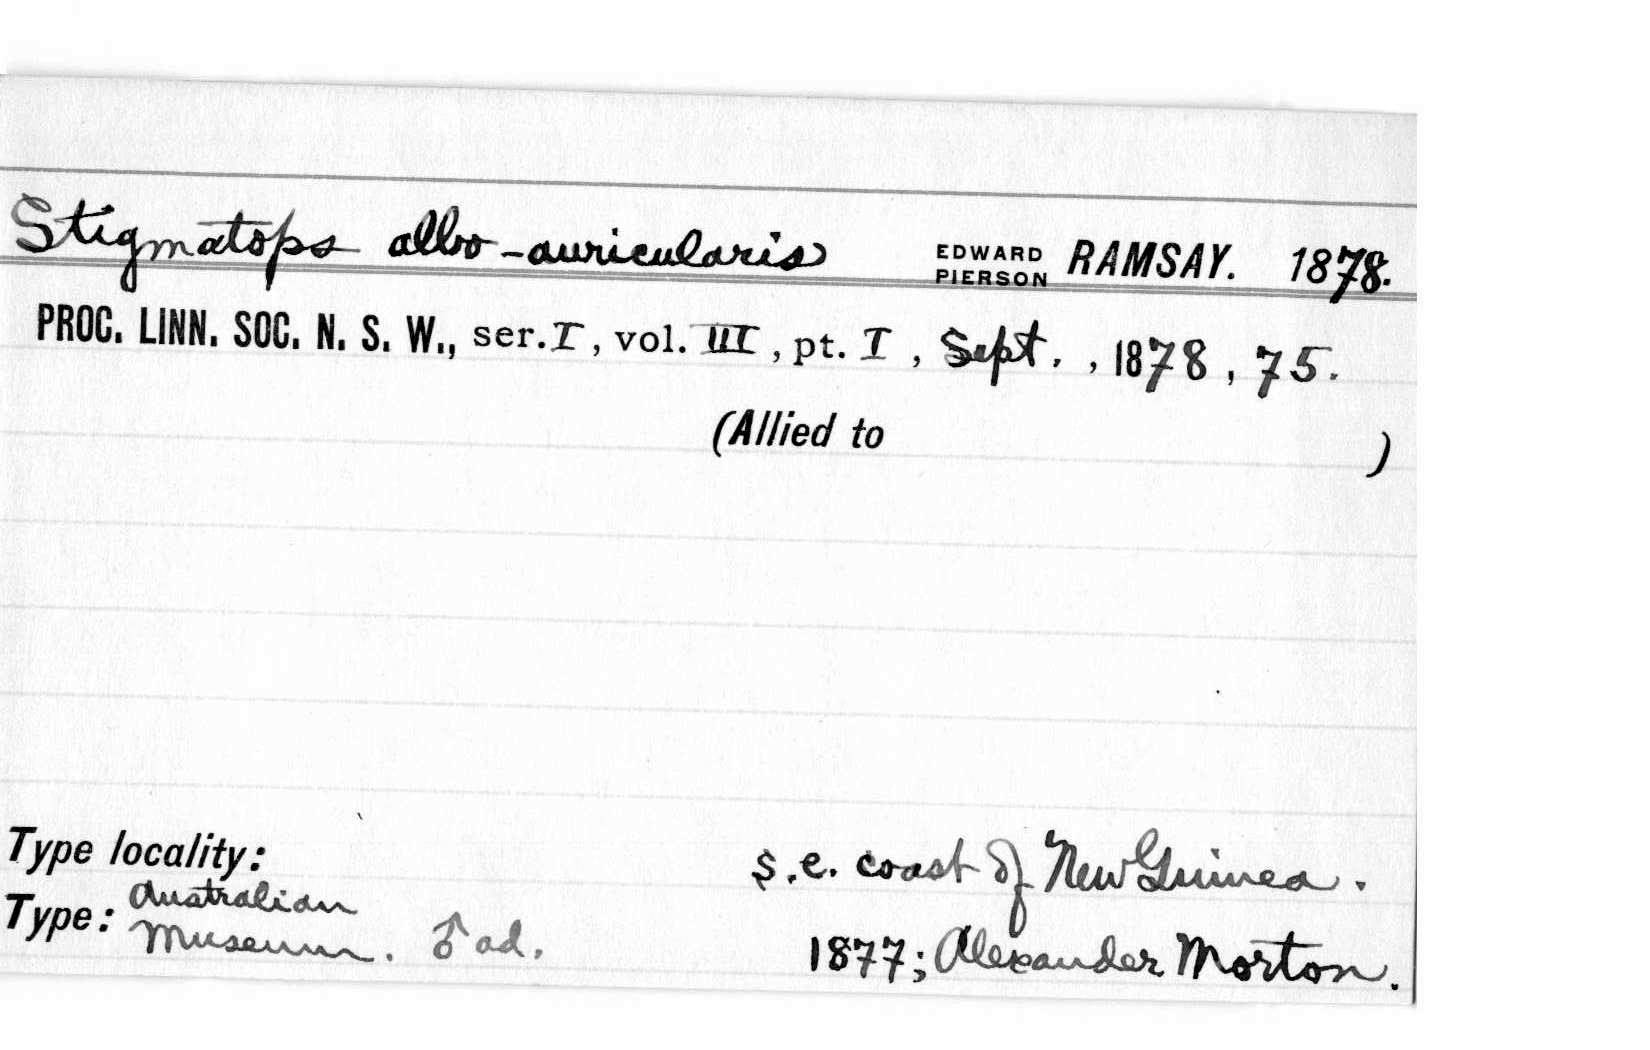 Stigmatops albo-auricularis EDWARD PIERSON RAMSAY. 1878.
PROC. LINN. SOC. N. S. W., ser. I, vol. III, pt. I, Sept., 1878, 75.
(Allied to )
Type locality: S.e. coast of New Guinea.
Type: Australian Museum. ♂ ad. 1877; Alexander Morton.